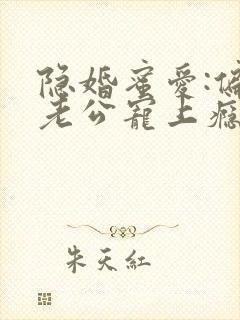 隐婚蜜爱:偏
老公宠上瘾
朱天红